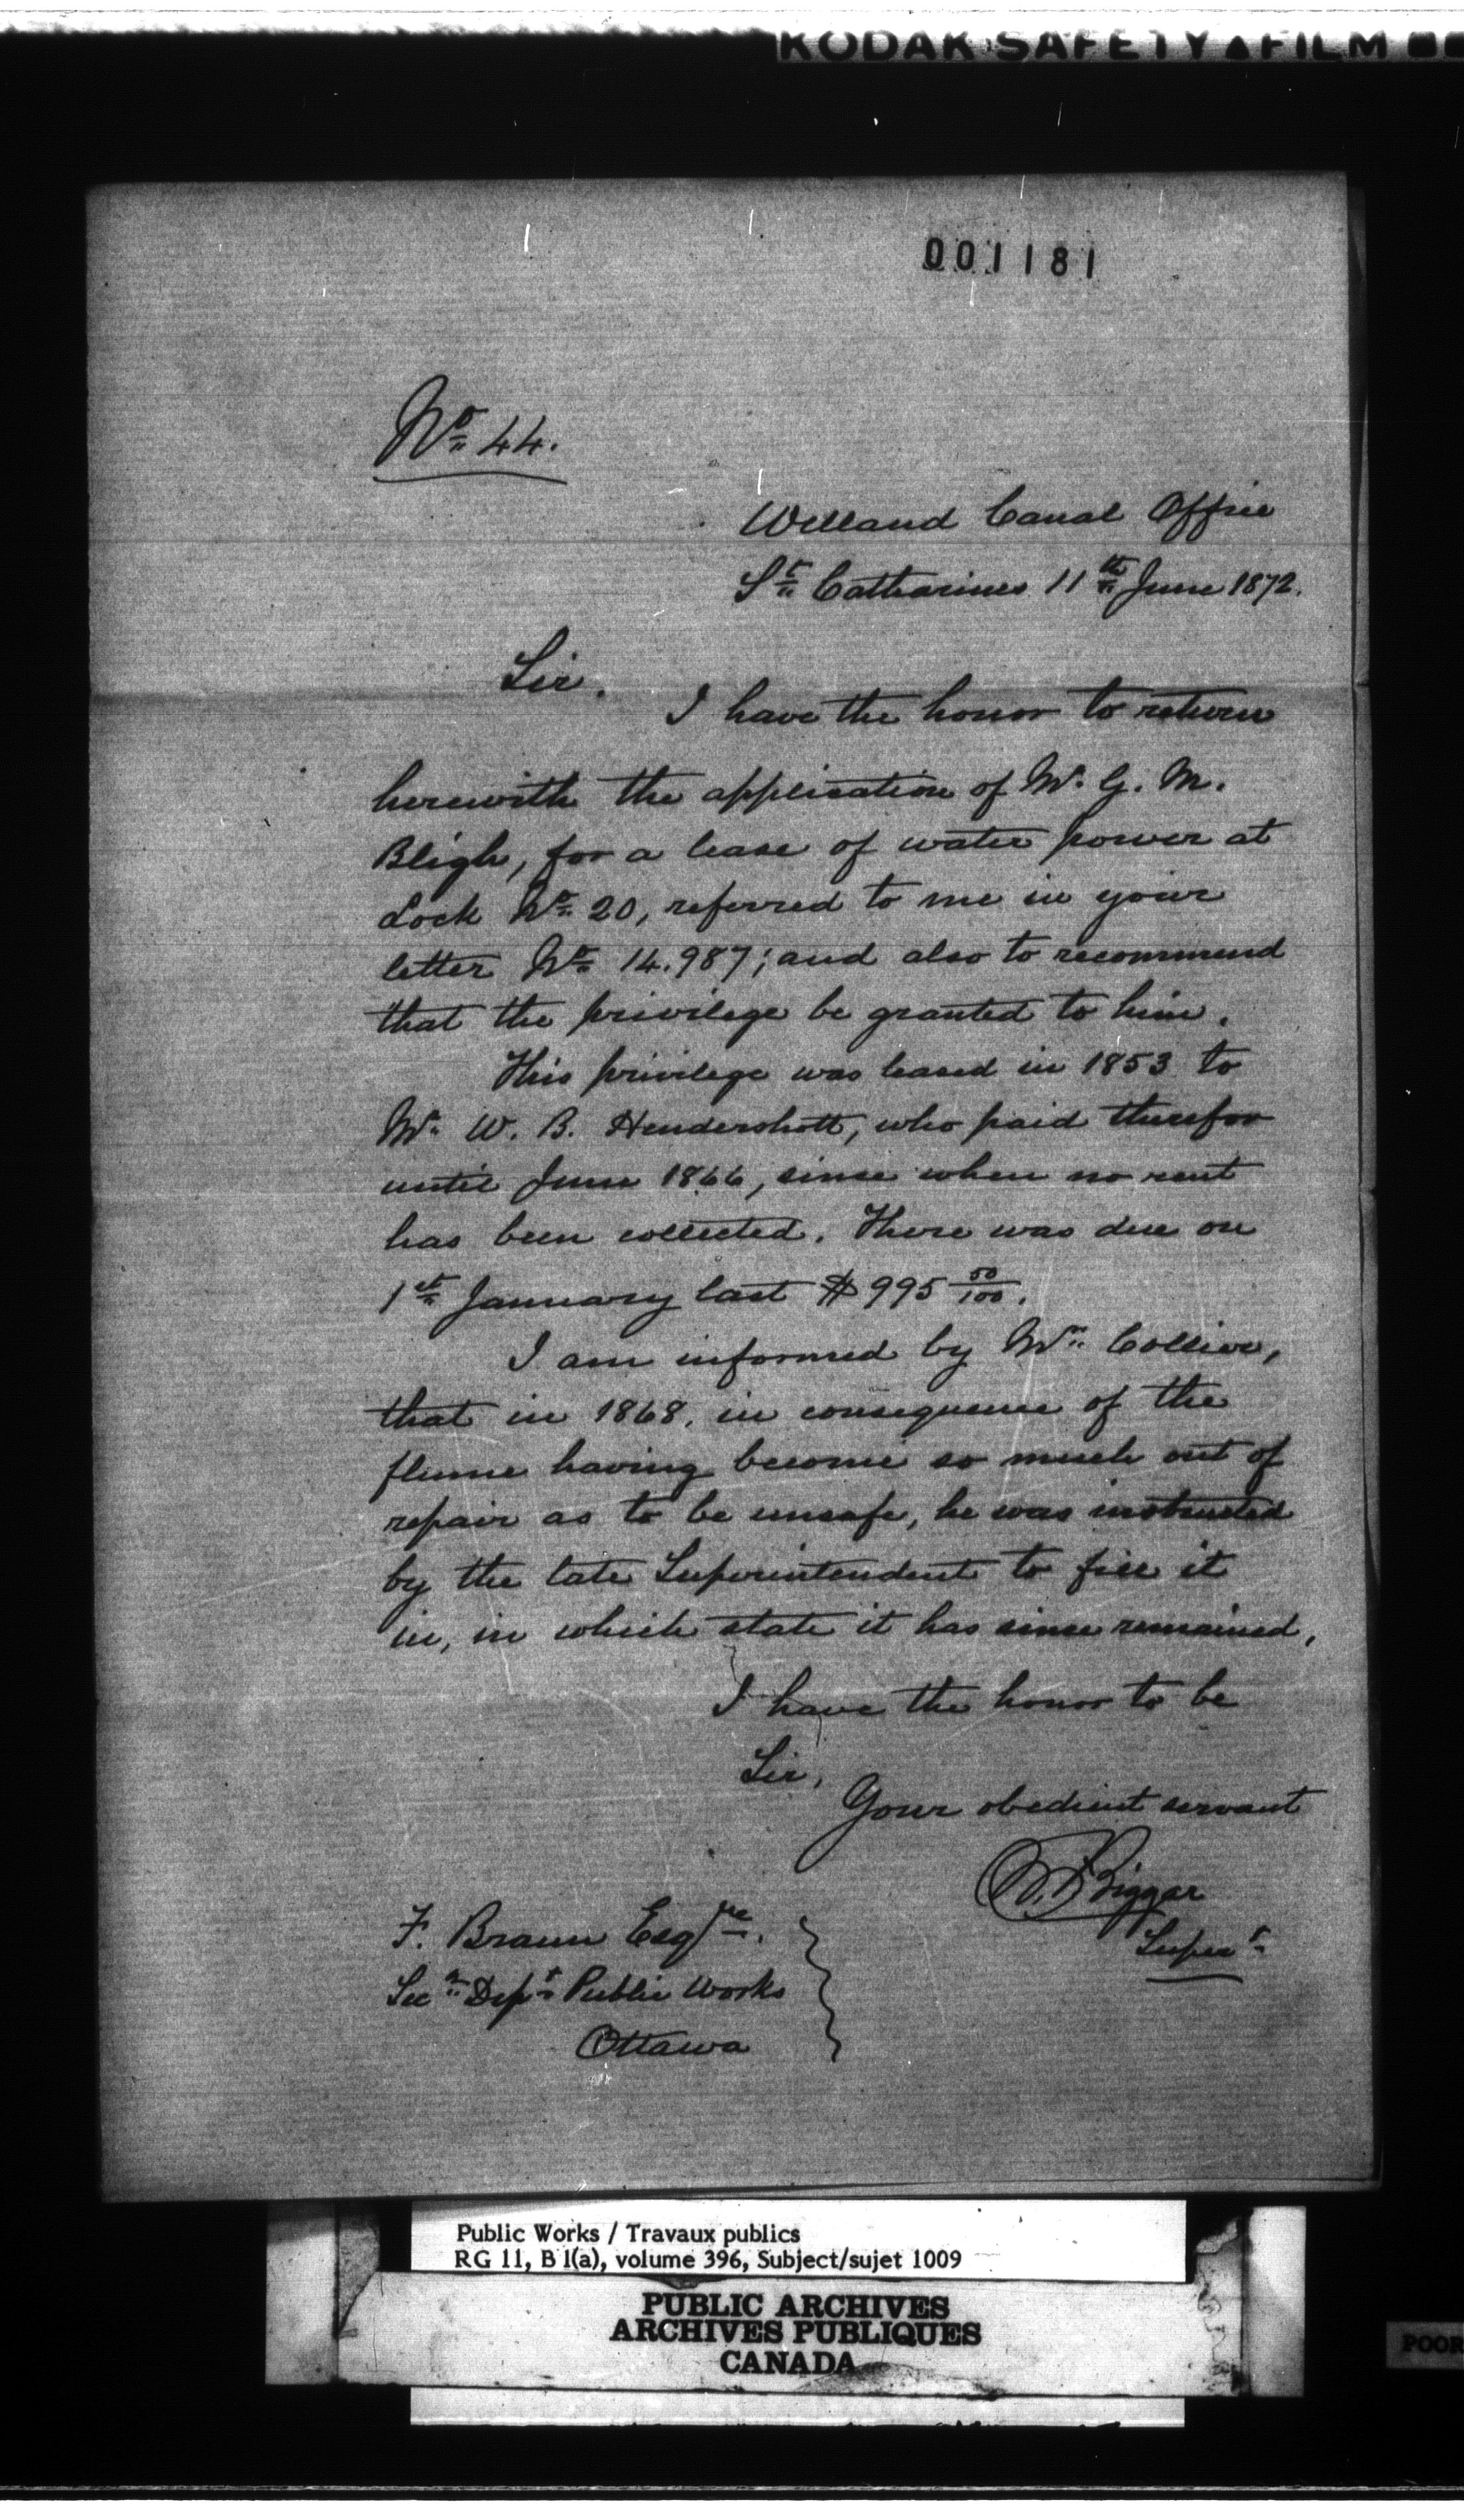 KODAK SAFETY FILM
001181
No 44.
Welland Canal Office
St Catharines 11th June 1872.
Sir.
I have the honor to return
herewith the application of Mr. G. M.
Bligh, for a lease of water power at
Lock No 20, referred to me in your
letter No 14.987; and also to recommend
that the privilege be granted to him.
This privilege was leased in 1853 to
Mr. W. B. Hendershott, who paid therefor
until June 1866, since when no rent
has been collected. There was due on
1st January last $995 50/100.
I am informed by Mr. Collier,
that in 1868, in consequence of the
flume having become so much out of
repair as to be unsafe, he was instructed
by the late Superintendent to fill it
in, in which state it has since remained.
I have the honor to be
Sir,
Your obedient servant
Biggar
Supert
F. Braun Esqre.
Secy Dept Public Works
Ottawa
Public Works / Travaux publics
RG 11, B 1(a), volume 396, Subject/sujet 1009
PUBLIC ARCHIVES
ARCHIVES PUBLIQUES
CANADA
POOR